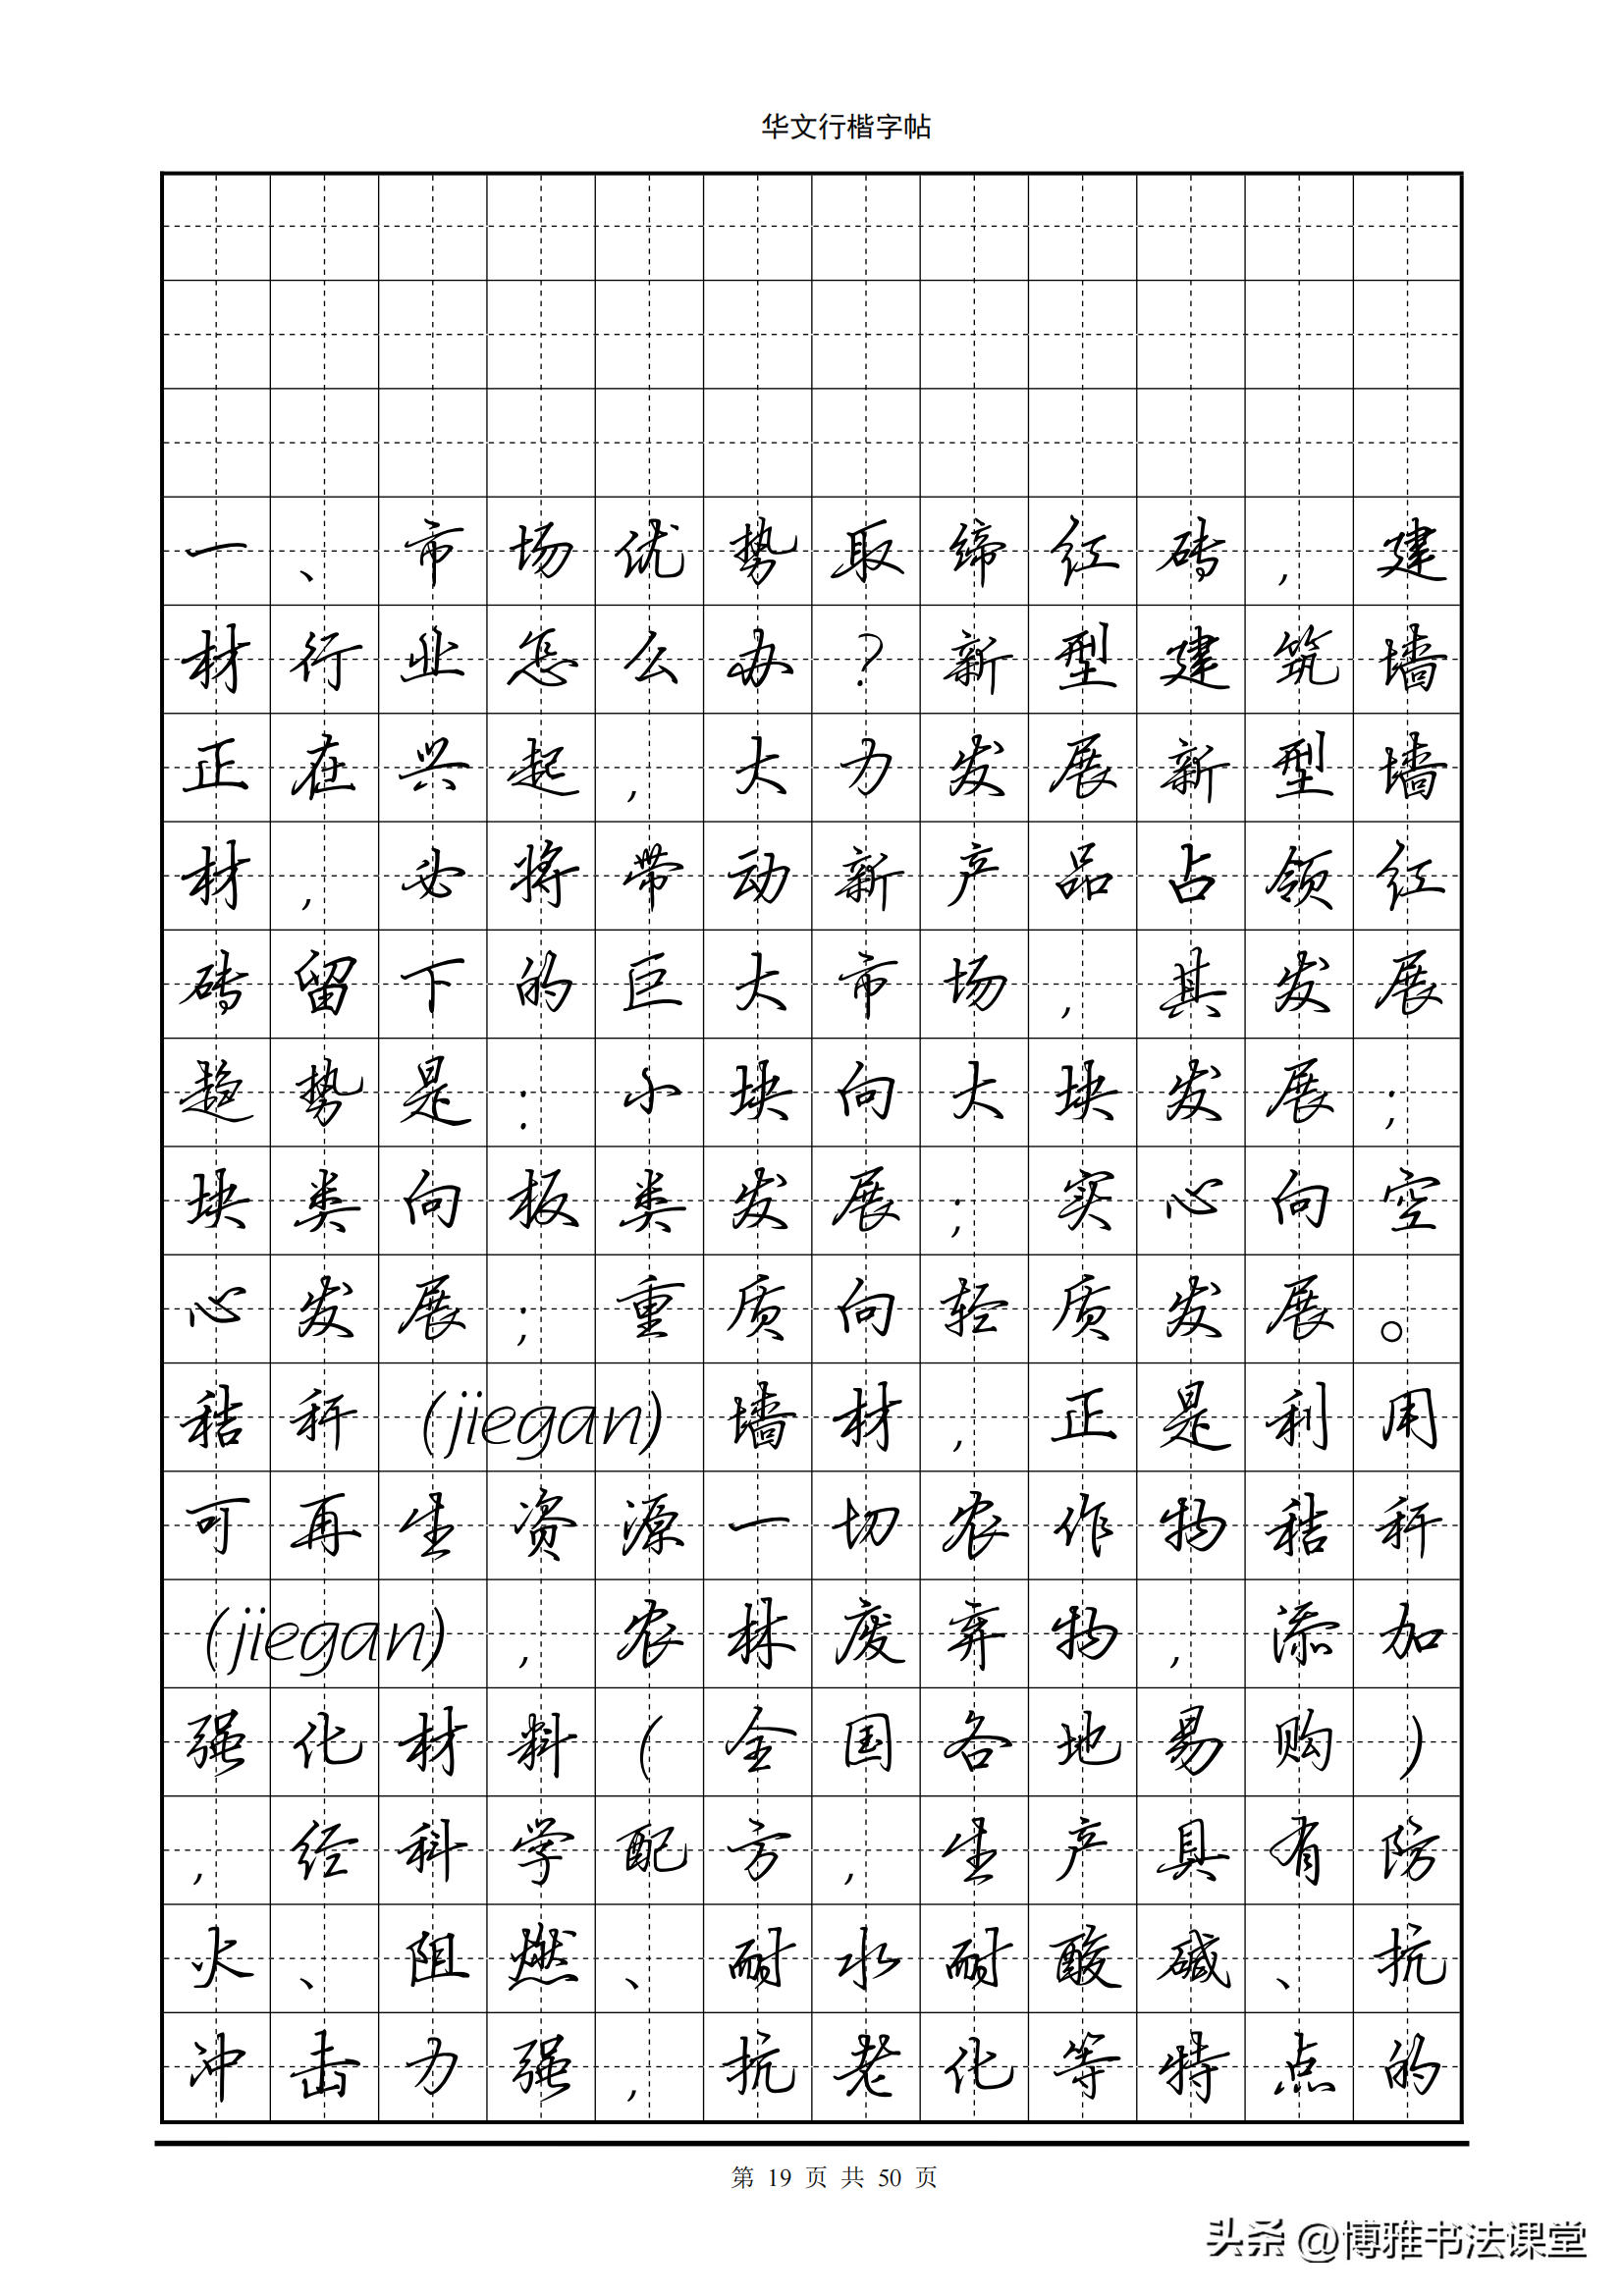 华文行楷字帖
一、市场优势取缔红砖，建
材行业怎么办？新型建筑墙
正在兴起，大力发展新型墙
材，必将带动新产品占领红
砖留下的巨大市场，其发展
趋势是：小块向大块发展；
块类向板类发展；实心向空
心发展；重质向轻质发展。
秸秆(jiegan)墙材，正是利用
可再生资源一切农作物秸秆
(jiegan)，农林废弃物，添加
强化材料（全国各地易购）
，经科学配方，生产具有防
火、阻燃、耐水耐酸碱、抗
冲击力强，抗老化等特点的
第 19 页 共 50 页
头条 @博雅书法课堂